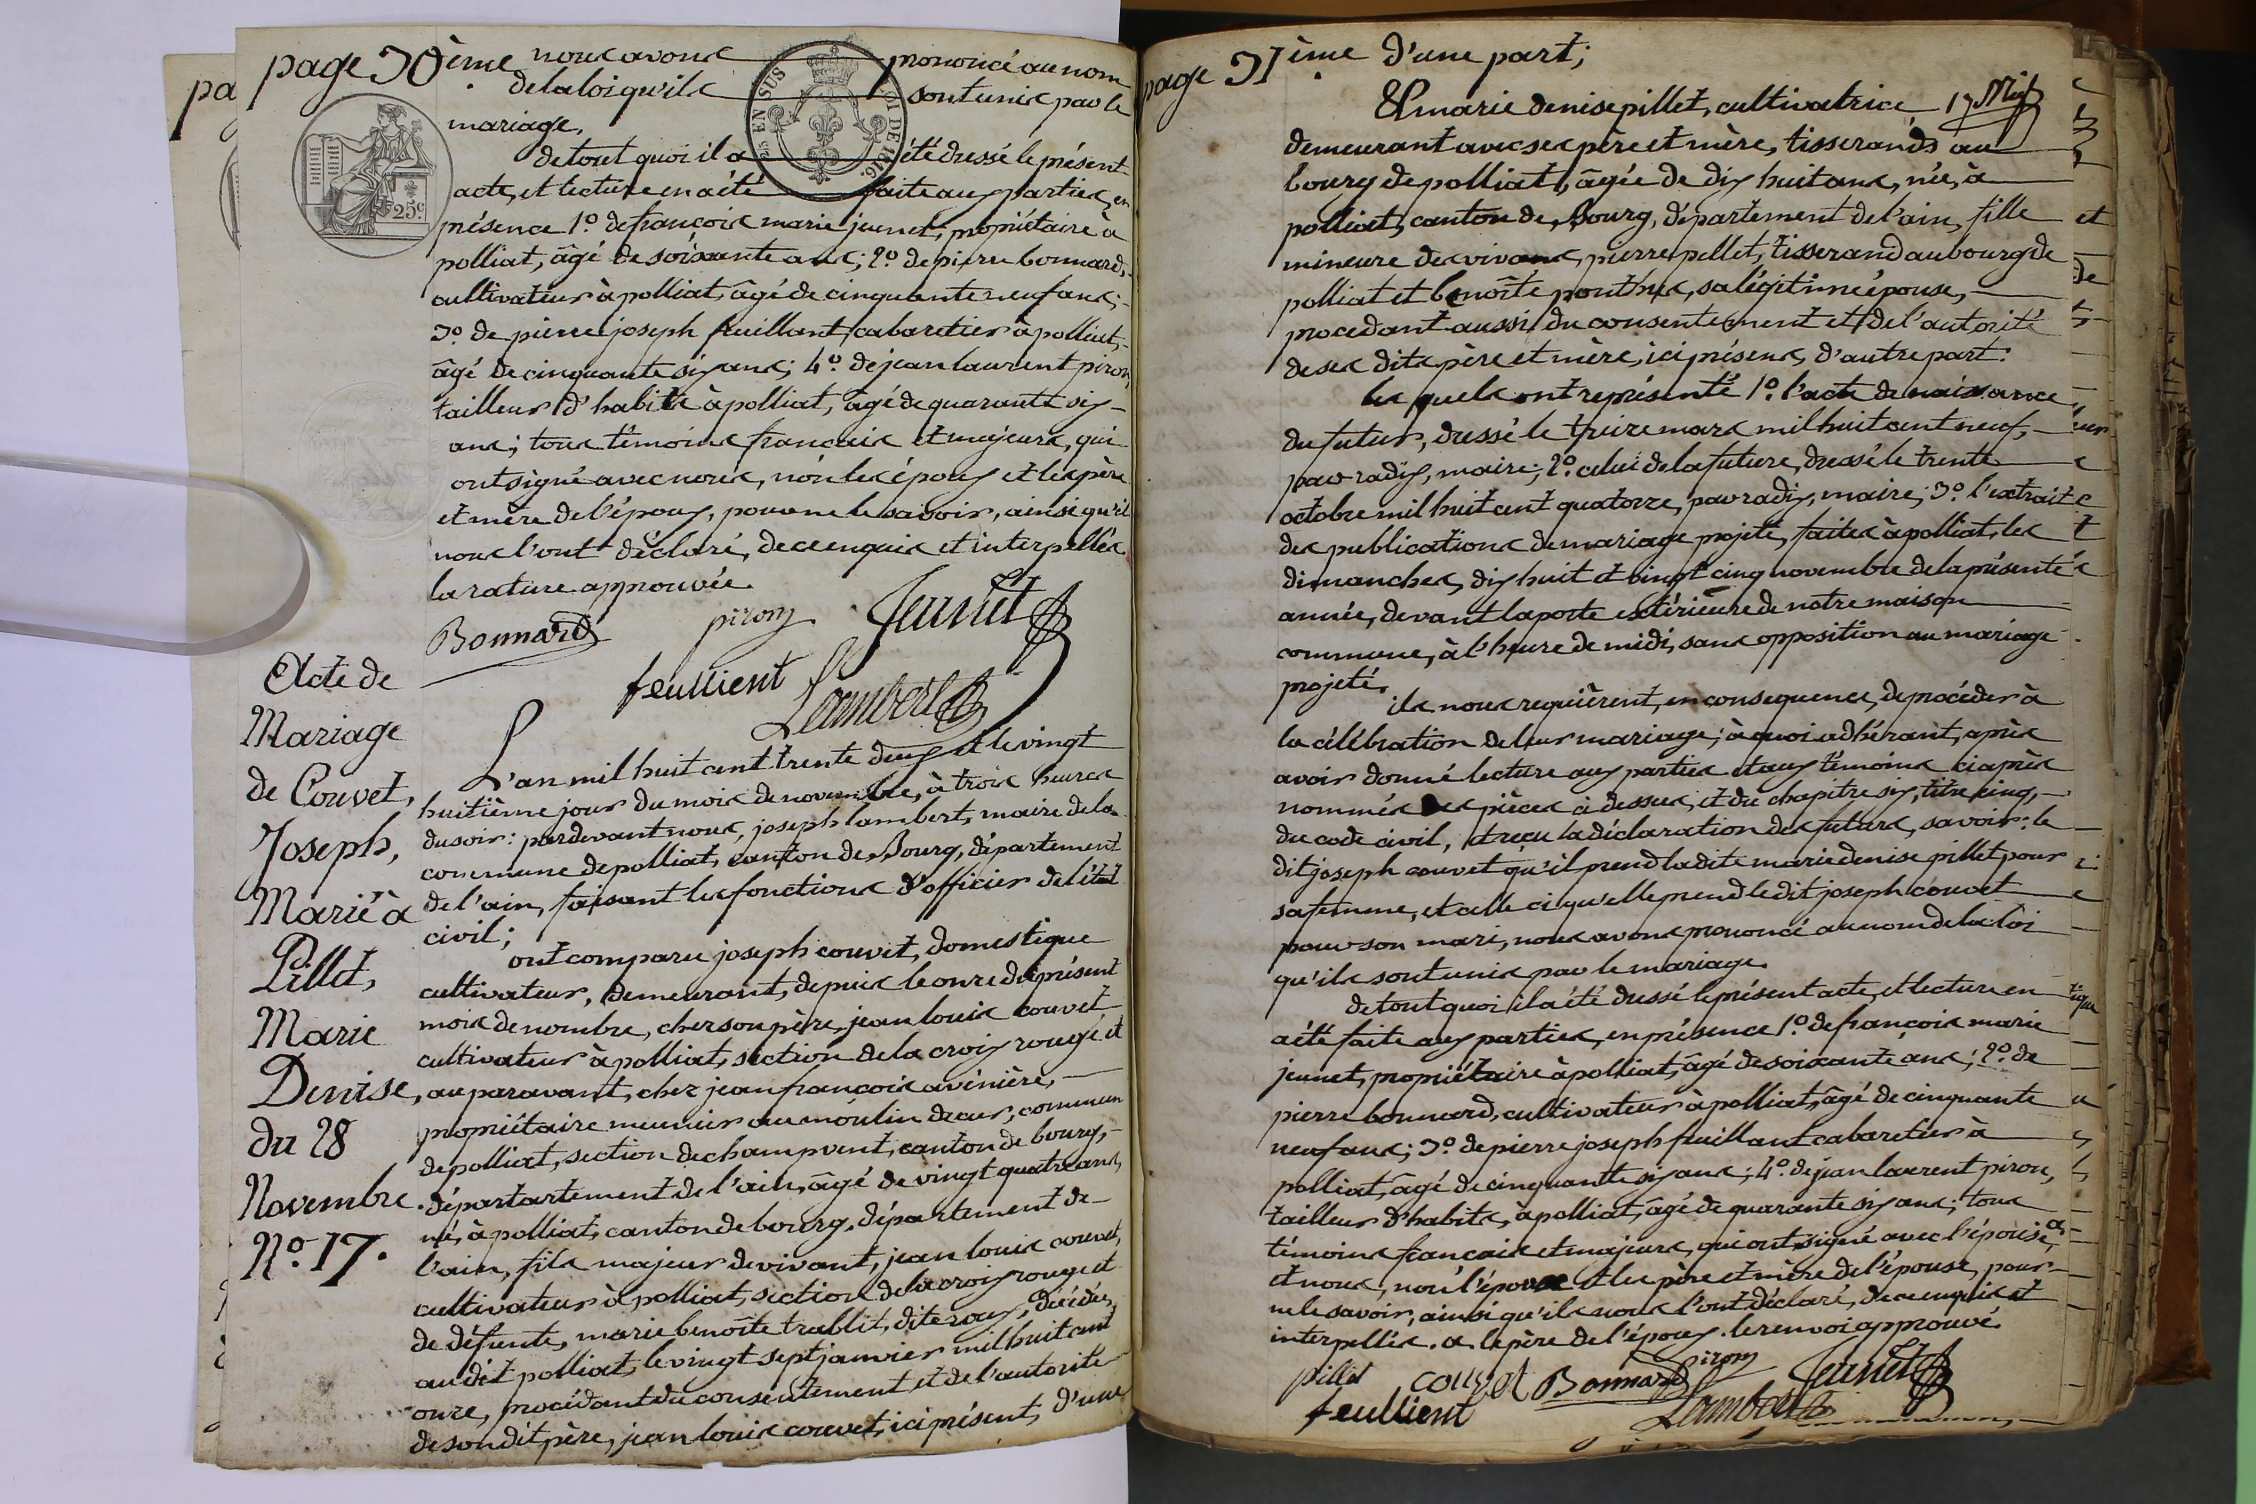 page 30ème nous avons prononcé au nom
de la loi qu'ils sont unis par le
mariage.
de tout quoi il a été dressé le présent
acte, et lecture en a été faite aux parties, en
présence 1.° de françois marie jeunet, propriétaire à
polliat, âgé de soixante ans; 2.° de pierre bonnard,
cultivateur à polliat, âgé de cinquante neuf ans;
3.° de pierre joseph feuillant, cabaretier à polliat,
âgé de cinquante six ans; 4.° de jean laurent piron,
tailleur d'habits à polliat, âgé de quarante six
ans; tous témoins français et majeurs, qui
ont signé avec nous, non les époux et les père
et mère de l'époux, pour ne le savoir, ainsi qu'il
nous l'ont déclaré, de ce enquis et interpellés.
la rature approuvée.
Bonnard piron Jeunet
feullient Lambert
EN SUS
LOI DE 1816.
25c
Acte de
Mariage
de Couvet,
Joseph,
Marié à
Pillet,
Marie
Denise,
du 28
Novembre.
N.° 17.
L'an mil huit cent trente deux et le vingt
huitième jour du mois de novembre, à trois heures
du soir: pardevant nous, joseph lambert, maire de la
commune de polliat, canton de Bourg, département
de l'ain, faisant les fonctions d'officier de l'état
civil;
ont comparu joseph couvet, domestique
cultivateur, demeurant, depuis le onze du présent
mois de nombre, cher son père, jean louis couvet,
cultivateur à polliat, section de la croix rouge, et
auparavant, chez jean françois avinière,
propriétaire meunier au moulin decur, commun
de polliat, section de champvent, canton de bourg,
départartement de l'ain, âgé de vingt quatre ans,
né, à polliat, canton de bourg, département de
l'ain, fils majeur de vivant, jean louis couvet,
cultivateur à polliat, section de la croix rouge et
de défunte, marie benoîte trablit, dite roux, décédée,
au dit polliat, le vingt sept janvier mil huit cent
onze, procédant du consentement et de l'autorité
de son dit père, jean louis couvet, ici présent, d'une
page 31ème d'une part;
Et marie denise pillet, cultivatrice,
demeurant avec ses père et mère, tisserands au
bourg de polliat, âgée de dix huit ans, née, à
polliat, canton de Bourg, département de l'ain, fille
mineure des vivans, pierre pillet, tisserand au bourg de
polliat et benoîte ponthus, sa légitime épouse,
procédant aussi du consentement et de l'autorité
de ses dits père et mère, ici présens, d'autre part:
les quels ont représenté 1.° l'acte de naissance
du futur, dressé le treize mars mil huit cent neuf,
par radix, maire; 2.° celui de la future, dressé le trente
octobre mil huit cent quatorze, par radix, maire; 3.° l'extrait
des publications de mariage projeté, faites à polliat, les
dimanches, dix huit et vingt cinq novembre de la présente
année, devant la porte extérieure de notre maison
commune, à l'heure de midi, sans opposition au mariage
projeté.
ils nous requièrent, en conséquence, de procéder à
la célébration de leur mariage; à quoi adhérant, après
avoir donné lecture aux parties et aux témoins ci après
nommés des pièces ci dessus, et du chapitre six, titre cinq,
du code civil, et reçu la déclaration des futurs, savoir: le
dit joseph couvet qu'il prend la dite marie denise pillet pour
sa femme, et celle ci qu'elle prend le dit joseph couvet
pour son mari, nous avons prononcé au nom de la loi
qu'ils sont unis par le mariage.
de tout quoi il a été dressé le présent acte, et lecture en
a été faite aux parties, en présence 1.° de françois marie
jeunet, propriétaire à polliat, âgé de soixante ans; 2.° de
pierre bonnard, cultivateur à polliat, âgé de cinquante
neuf ans; 3.° de pierre joseph feuillant cabaretier à
polliat, âgé de cinquante six ans; 4.° de jean laurent piron,
tailleur d'habits, à polliat, âgé de quarante six ans; tous
témoins français et majeurs, qui ont signé avec l'épouse, a
et nous, non l'époux et les père et mère de l'épouse, pour
ne le savoir, ainsi qu'ils nous l'ont déclaré, de ce enquis et
interpellés. a le père de l'époux. le renvoi approuvé.
pillet couvet Bonnard piron Jeunet
feullient Lambert